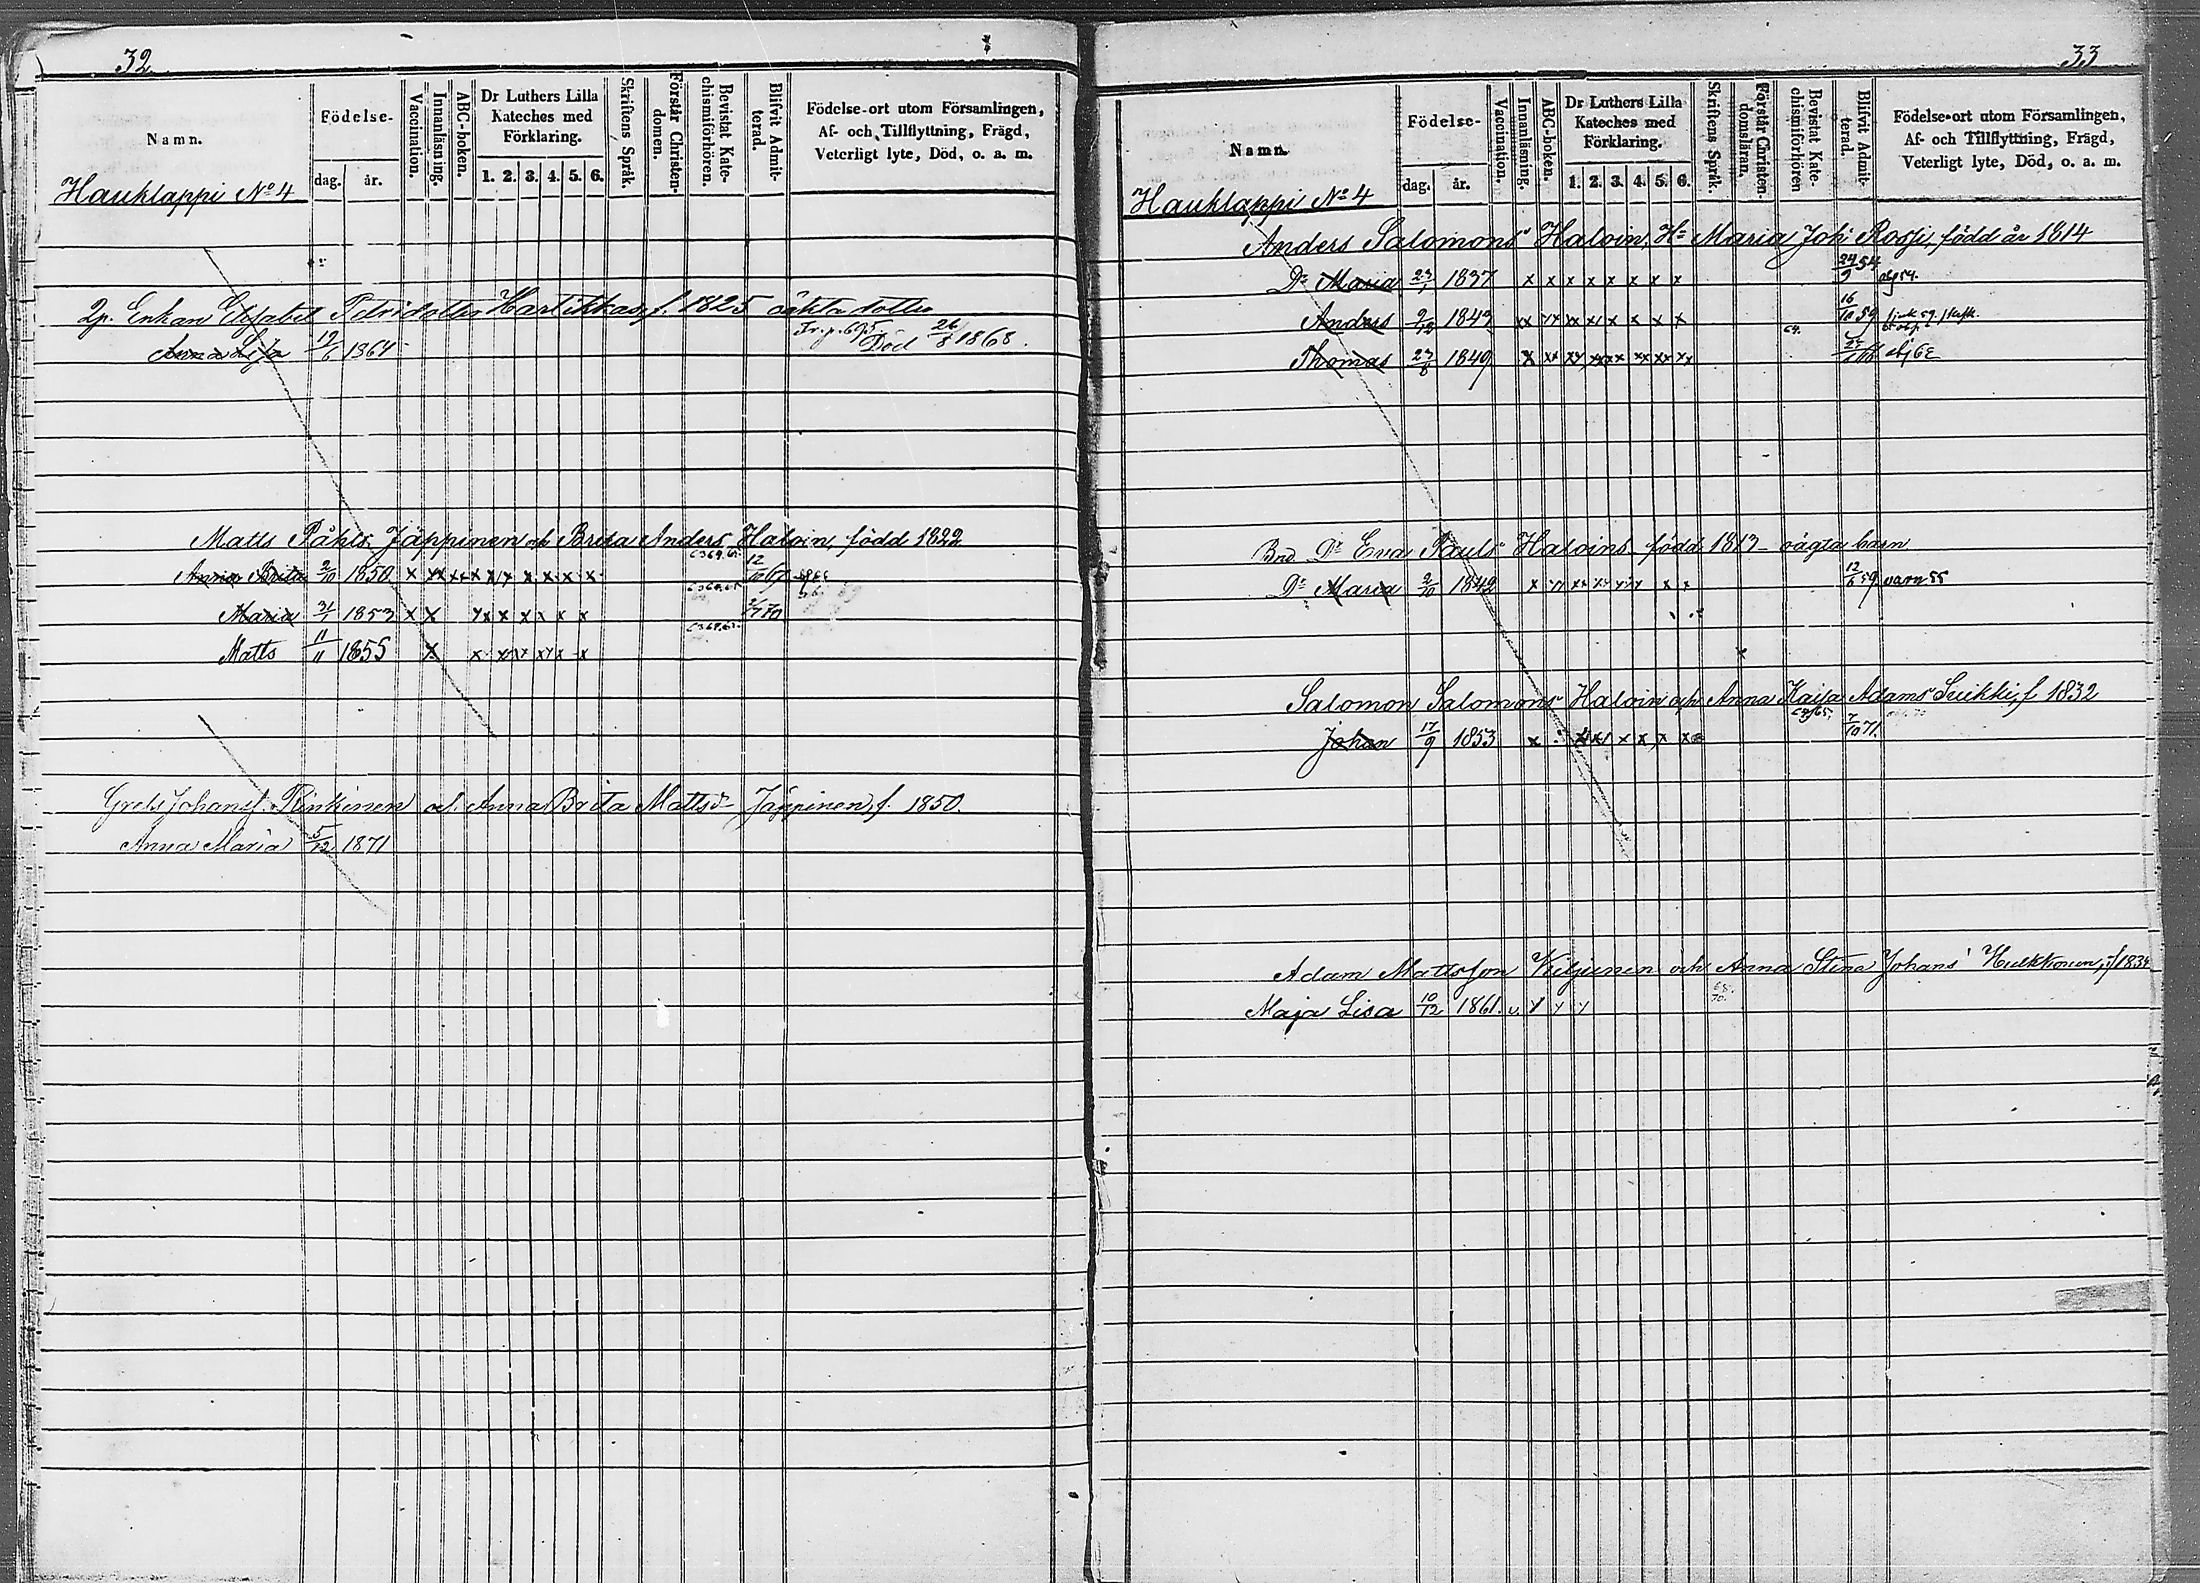 32
Namn.
Födelse-
dag. år.
Vaccination.
Innanläsning.
ABC-boken.
Dr Luthers Lilla Kateches med Förklaring.
1. 2. 3. 4. 5. 6.
Skriftens Språk.
Förstår Christendomen.
Bevistat Katechismiförhören.
Blifvit Admitterad.
Födelse-ort utom Församlingen,
Af- och Tillflyttning, Frägd,
Veterligt lyte, Död, o. a. m.
Hauklappi No 4
Enkan Elisabet Petridotter Hartikka, f. 1825 oäkta dotter
Tr. p. 695.
Anna Lisa 19/6 1864 Död 26/8 1868.
Matts Påhls Jäppinen och Brita Anders Haloin, född 1822
Anna Brita 2/10 1850 x xx xx x x x x x x 12/10 67
Maria 31/1 1853 x x x x x x x x 2/7 70
Matts 11/11 1855 x x xx xx x x
Grels Johansf. Pinkinen och Anna Brita Matts dr Jäppinen, f. 1850.
Anna Maria 5/12 1871
33
Namn.
Födelse-
dag. år.
Vaccination.
Innanläsning.
ABC-boken.
Dr Luthers Lilla Kateches med Förklaring.
1. 2. 3. 4. 5. 6.
Skriftens Språk.
Förstår Christendomsläran.
Bevistat Katechismiförhören
Blifvit Admitterad.
Födelse-ort utom Församlingen,
Af- och Tillflyttning, Frägd,
Veterligt lyte, Död, o. a. m.
Hauklappi No 4
Anders Salomons Haloin, Hu Maria Joh. Rossi, född år 1814
Dr Maria 23/1 1837 x x x x x x x x 24/9 54 obj 54.
Anders 9/12 1843 xx xx x x x x x 64. 16/10 59
Thomas 23/8 1849 x xx xx xx xx xx xx xx obj 68
Dr Eva Pauls Haloins född 1813 oägta barn
Dr Maria 2/10 1842 x xx xx xx xx x x 12/6 59 varn 55
Salomon Salomons Haloin och Anna Kaisa Adams Suikki, f 1832
Johan 17/9 1853 x x xx x x x x 7/10 71.
Adam Mattsson Viljunen och Anna Stina Johans Hulkkonen, f 1834
Maja Lisa 10/12 1861. v. x x x